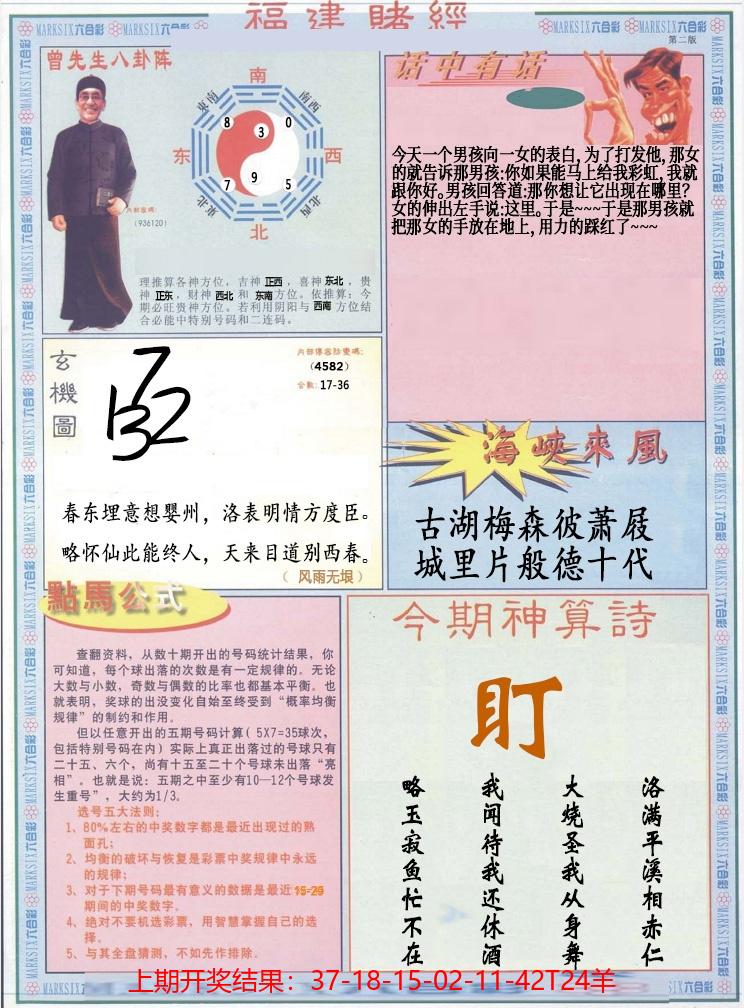 福建賭經
MARKSIX六合彩
MARKSIX六合彩
MARKSIX六合彩
MARKSIX六合彩
第二版
曾先生八卦阵
南
东南
西南
东
西
东北
西北
北
8
3
0
7
9
5
内部密碼:
(936120)
理推算各神方位，吉神 正西 ，喜神 东北 ，贵
神 正东 ，财神 西北 和 东南 方位。依推算：今
期必旺贵神方位。若利用阴阳与 西南 方位结
合必能中特别号码和二连码。
话中有话
今天一个男孩向一女的表白, 为了打发他, 那女
的就告诉那男孩:你如果能马上给我彩虹, 我就
跟你好。男孩回答道:那你想让它出现在哪里?
女的伸出左手说:这里。于是~~~于是那男孩就
把那女的手放在地上, 用力的踩红了~~~
玄機圖
内部傳密防電碼:
(4582)
合數: 17-36
春东埋意想婴州，洛表明情方度臣。
略怀仙此能终人，天来目道别西春。
（ 风雨无垠 ）
海峽來風
古湖梅森彼萧屐
城里片般德十代
點馬公式
查翻资料，从数十期开出的号码统计结果，你
可知道，每个球出落的次数是有一定规律的。无论
大数与小数，奇数与偶数的比率也都基本平衡。也
就表明，奖球的出没变化自始至终受到“概率均衡
规律”的制约和作用。
但以任意开出的五期号码计算( 5X7=35球次，
包括特别号码在内) 实际上真正出落过的号球只有
二十五、六个，尚有十五至二十个号球未出落“亮
相”。也就是说：五期之中至少有10—12个号球发
生重号”，大约为1/3。
选号五大法则：
1、80%左右的中奖数字都是最近出现过的熟
面孔；
2、均衡的破坏与恢复是彩票中奖规律中永远
的规律；
3、对于下期号码最有意义的数据是最近 15-20
期间的中奖数字。
4、绝对不要机选彩票，用智慧掌握自己的选
择。
5、与其全盘猜测，不如先作排除.
今期神算詩
盯
洛满平溪相赤仁
火烧圣我从身舞
我闻待我还休酒
略玉寂鱼忙不在
上期开奖结果：37-18-15-02-11-42T24羊